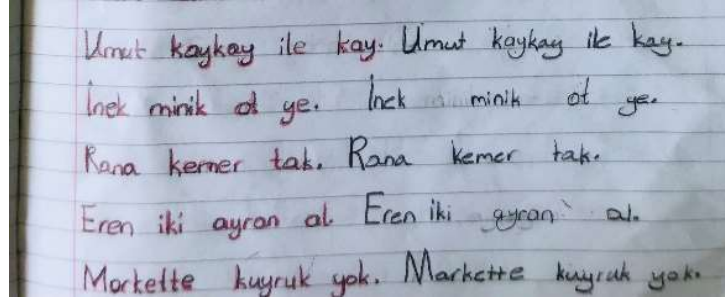 Umut kaykay ile kay. Umut kaykay ile kay.
İnek minik ot ye. İnek minik ot ye.
Rana kemer tak. Rana kemer tak.
Eren iki ayran al Eren iki ayran al.
Markette kuyruk yok. Markette kuyruk yok.